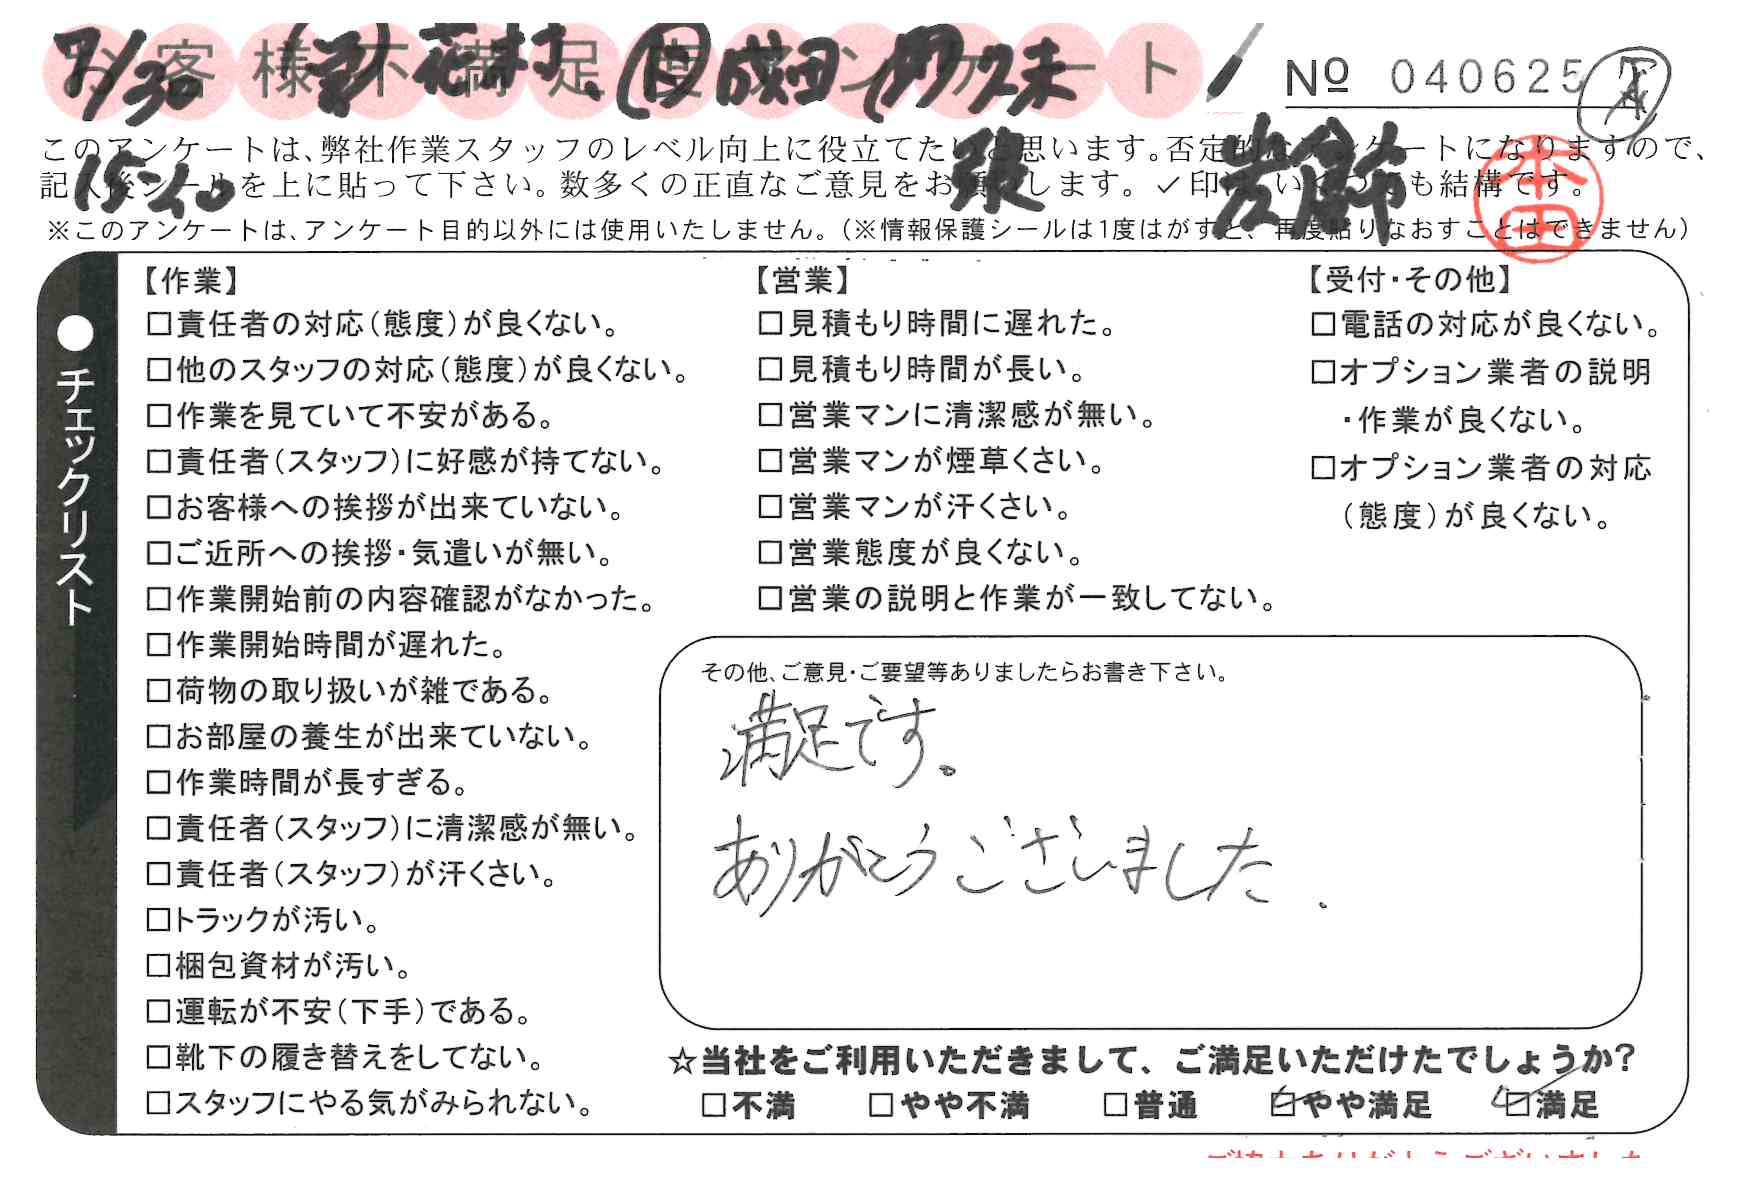 お客様不満足度アンケート
7/30
成田
久末
Nº 040625
このアンケートは、弊社作業スタッフのレベル向上に役立てたいと思います。否定的なアンケートになりますので、
記入後シールを上に貼って下さい。数多くの正直なご意見をお願いします。✓印は、いくつでも結構です。
本田
※このアンケートは、アンケート目的以外には使用いたしません。(※情報保護シールは1度はがすと、再度貼りなおすことはできません)
●チェックリスト
【作業】
□責任者の対応(態度)が良くない。
□他のスタッフの対応(態度)が良くない。
□作業を見ていて不安がある。
□責任者(スタッフ)に好感が持てない。
□お客様への挨拶が出来ていない。
□ご近所への挨拶・気遣いが無い。
□作業開始前の内容確認がなかった。
□作業開始時間が遅れた。
□荷物の取り扱いが雑である。
□お部屋の養生が出来ていない。
□作業時間が長すぎる。
□責任者(スタッフ)に清潔感が無い。
□責任者(スタッフ)が汗くさい。
□トラックが汚い。
□梱包資材が汚い。
□運転が不安(下手)である。
□靴下の履き替えをしてない。
□スタッフにやる気がみられない。
【営業】
□見積もり時間に遅れた。
□見積もり時間が長い。
□営業マンに清潔感が無い。
□営業マンが煙草くさい。
□営業マンが汗くさい。
□営業態度が良くない。
□営業の説明と作業が一致してない。
【受付・その他】
□電話の対応が良くない。
□オプション業者の説明
・作業が良くない。
□オプション業者の対応
(態度)が良くない。
その他、ご意見・ご要望等ありましたらお書き下さい。
満足です。
ありがとうございました.
☆当社をご利用いただきまして、ご満足いただけたでしょうか?
□不満 □やや不満 □普通 □やや満足 ☑満足